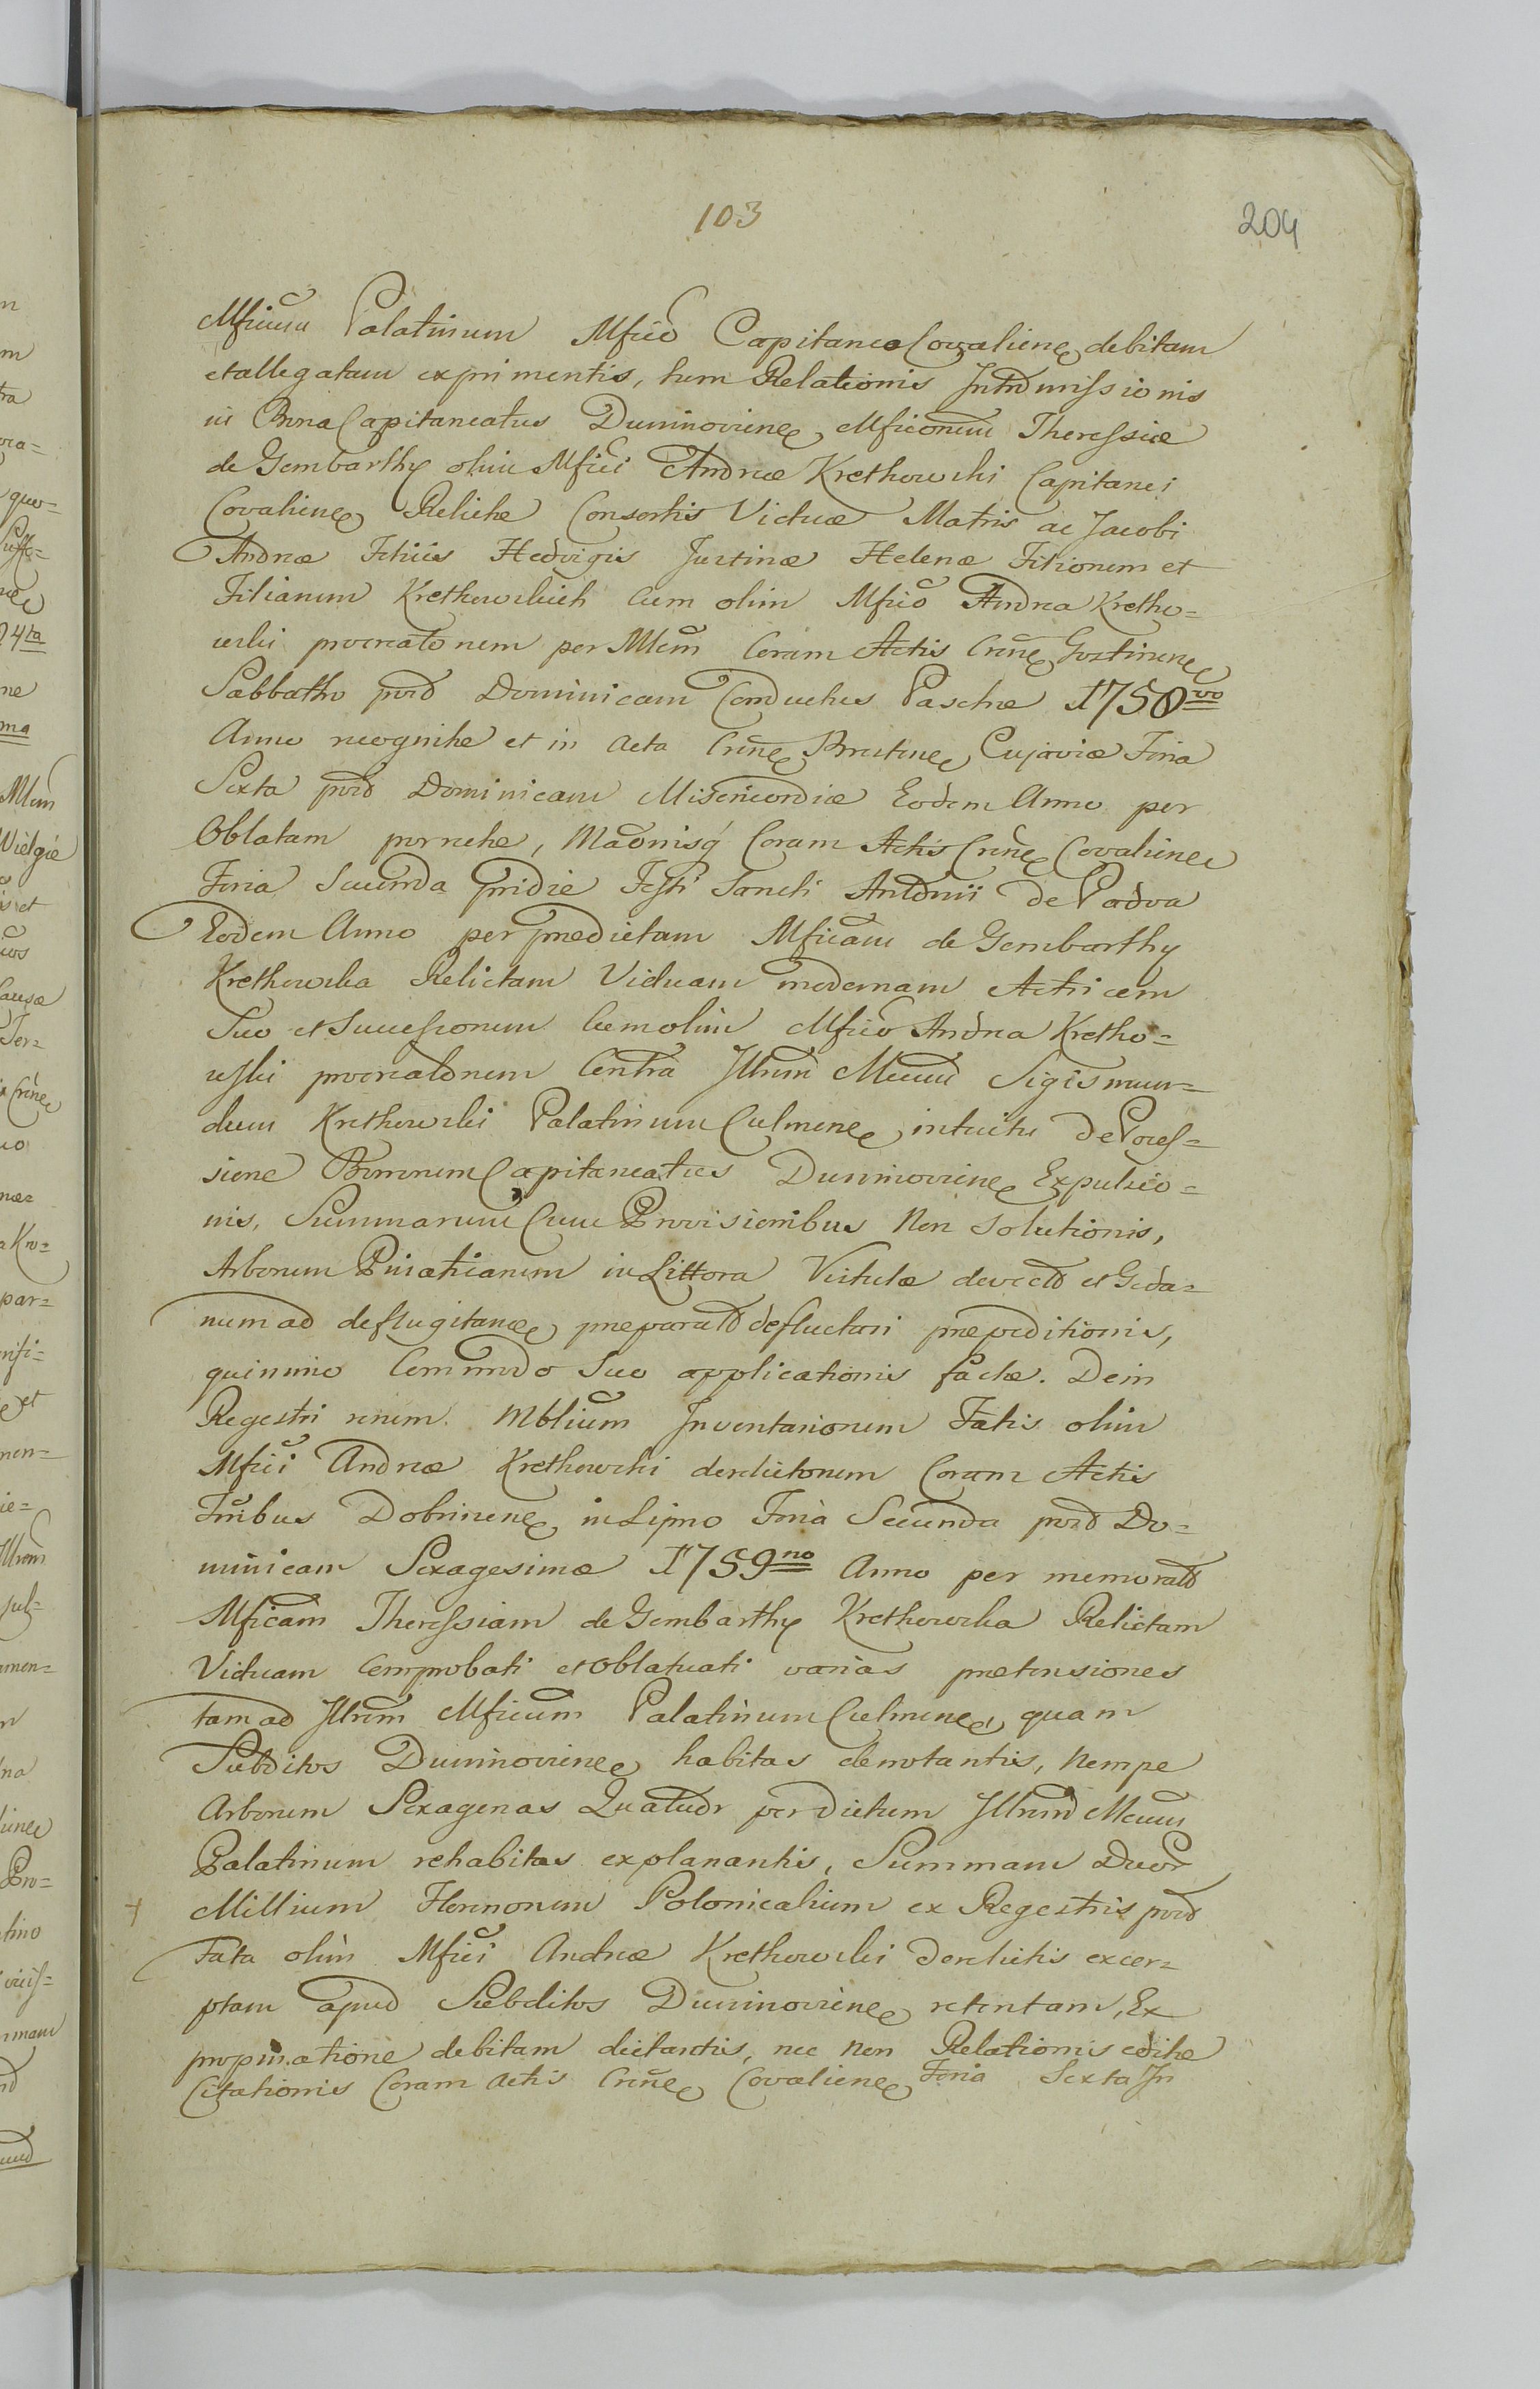 103
204
Mficum Palatinum Mfico Capitaneo Covaliene debitam
et allegatam exprimentis, tum Relationis Intromissionis
in Bona Capitaneatus Duninoviene Mficorum Theressiæ
de Gembarthy olim Mfici Andreæ Krethowski Capitanei
Covaliene Relictæ Consortis Viduæ Matris ac Jacobi
Andreæ Filiis Hedvigis Justinæ Helenæ Filiorum et
Filiarum Krethowskich cum olim Mfico Andrea Kretho=
wski procreatorum per Mlem Coram Actis Crene Gostinene
Sabbatho post Dominicam Conductus Paschæ 1758vo
Anno recognitæ et in Acta Crene Brestene Cujaviæ Feria
Sexta post Dominicam Misericordiæ Eodem Anno per
Oblatam porrectæ, Maonisq Coram Actis Crene Covaliene
Feria Secunda pridie Festi Sancti Antonii de Padva
Eodem Anno per prædictam Mficam de Gembarthy
Krethowska Relictam Viduam modernam Actricem
Suo et Successorum Cum olim Mfico Andrea Kretho=
wski procreatorum Contra Illrum Mcum Sigismun=
dum Krethowski Palatinum Culmene intuitu de Posses=
sione Bonorum Capitaneatus Duninoviene Expulsio=
nis, Summarum Cum Provisionibus Non Solutionis,
Arborum Pinaticarum in Littora Vistulæ devecto et Geda=
num ad deflugitane præparato defluctari præpeditionis,
quinimo Commodo Suo applicationis factæ. Dein
Regestri rerum Mblium Inventariorum Fatis olim
Mfici Andreæ Krethowski derelictorum Coram Actis
Trnbus Dobrinene in Lipno Feria Secunda post Do=
minicam Sexagesimæ 1759no Anno per memorato
Mficam Theressiam de Gembarthy Krethowska Relictam
Viduam Comprobati et Oblatuati varias prætensiones
tam ad Illrum Mficum Palatinum Culmene, quam
Subditos Duninoviene habitas denotantis, Nempe
Arborum Sexagenas Quatuor per dictum Illrum Mcum
Palatinum rehabitas explanantis, Summam Duor
Millium Florenorum Polonicalium ex Regestris post
Fata olim Mfici Andreæ Krethowski derelictis excer=
ptam apud Subditos Duninoviene retentam, Ex
propinatione debitam dictantis, nec non Relationis editæ
Citationis Coram Actis Crene Covaliene Feria Sexta In